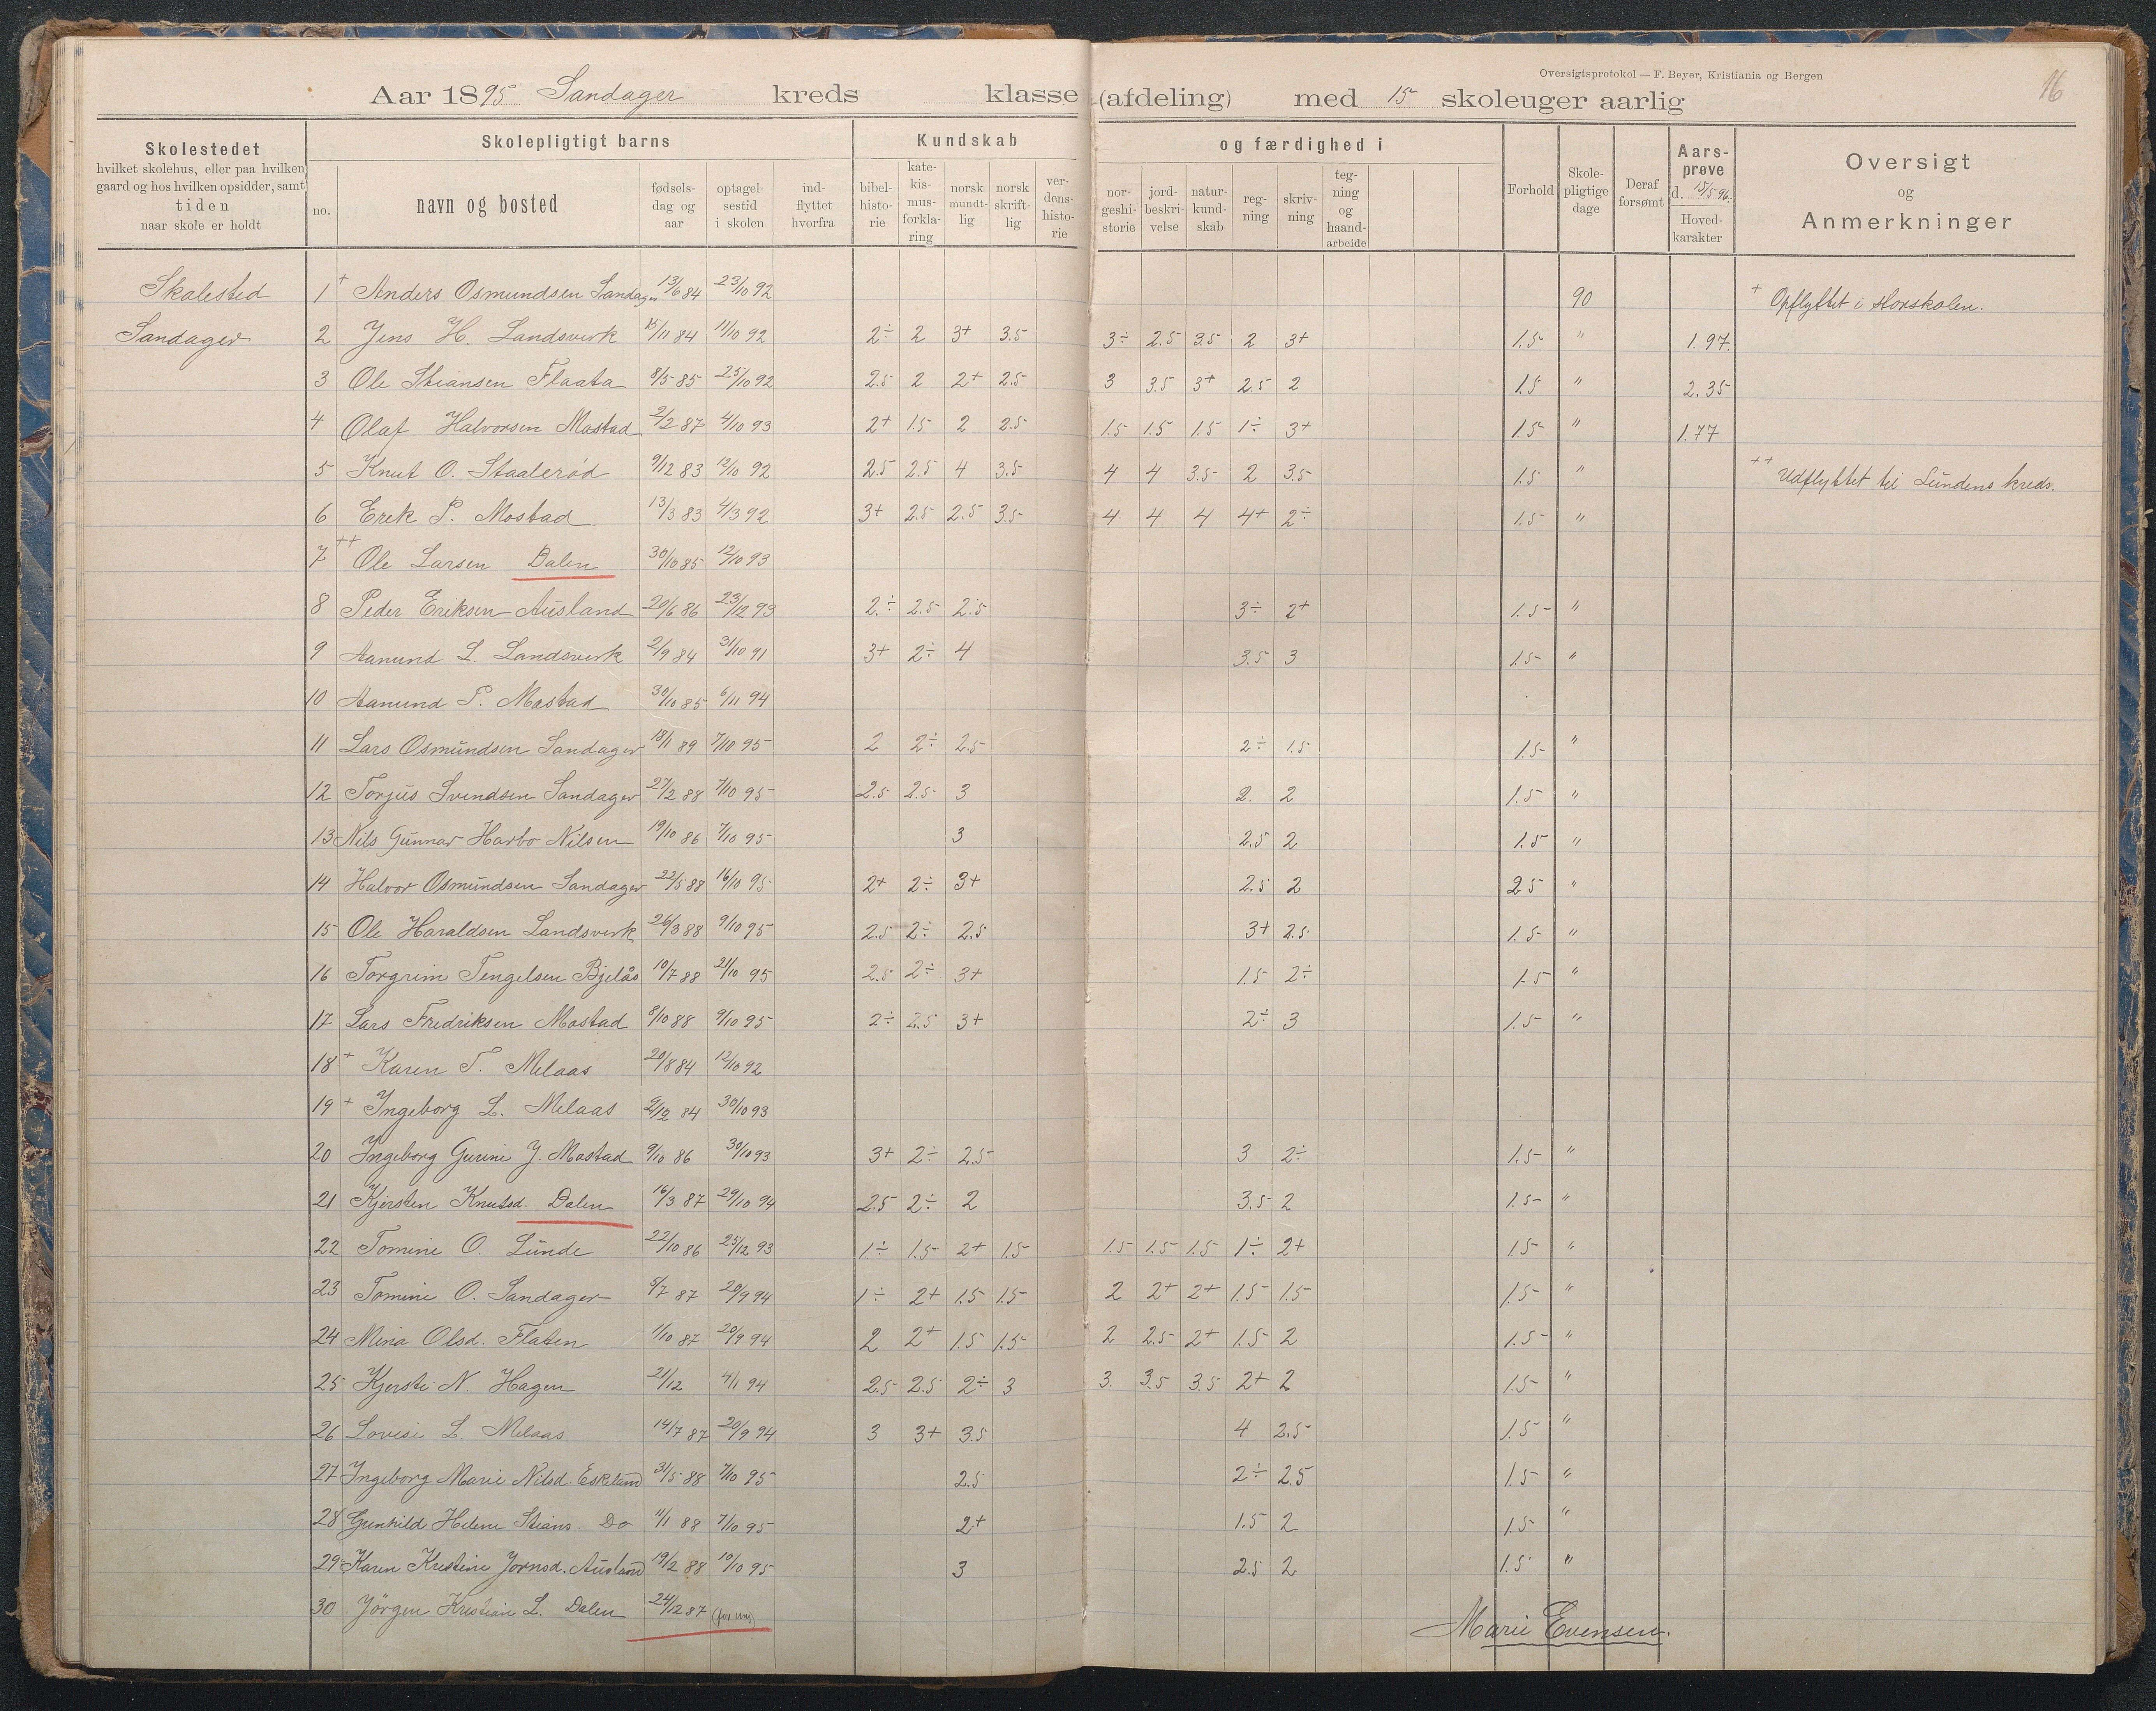 Oversigtsprotokol — F. Beyer, Kristiania og Bergen
16
Aar 1895 Sandager kreds klasse (afdeling) med 15 skoleuger aarlig
Skolestedet
hvilket skolehus, eller paa hvilken
gaard og hos hvilken opsidder, samt
tiden
naar skole er holdt
Skolepligtigt barns
no.
navn og bosted
fødsels-
dag og
aar
optagel-
sestid
i skolen
ind-
flyttet
hvorfra
Kundskab og færdighed i
bibel-
histo-
rie
kate-
kis-
mus-
forkla-
ring
norsk
mundt-
lig
norsk
skrift-
lig
ver-
dens-
histo-
rie
nor-
geshi-
storie
jord-
beskri-
velse
natur-
kund-
skab
reg-
ning
skriv-
ning
teg-
ning
og
haand-
arbeide
Forhold
Skole-
pligtige
dage
Deraf
forsømt
Aars-
prøve
d. 15/5 96.
Hoved-
karakter
Oversigt
og
Anmerkninger
Skolested
Sandager
1 + Anders Osmundsen Sandager 13/6 84 23/10 92 90 + Opflyttet i storskolen.
2 Jens H. Landsverk 15/11 84 11/10 92 2÷ 2 3+ 3.5 3÷ 2.5 3.5 2 3+ 1.5 " 1.97.
3 Ole Stiansen Flaata 8/5 85 25/10 92 2.5 2 2+ 2.5 3 3.5 3+ 2.5 2 1.5 " 2.35
4 Olaf Halvorsen Mostad 2/2 87 4/10 93 2+ 1.5 2 2.5 1.5 1.5 1.5 1÷ 3+ 1.5 " 1.77
5 Knut O. Staalerød 9/12 83 12/10 92 2.5 2.5 4 3.5 4 4 3.5 2 3.5 1.5 " ++ Udflyttet til Lundens kreds.
6 Erik P. Mostad 13/3 83 4/3 92 3+ 2.5 2.5 3.5 4 4 4 4+ 2÷ 1.5 "
7 ++ Ole Larsen Dalen 30/10 85 12/10 93
8 Peder Eriksen Ausland 20/6 86 23/12 93 2÷ 2.5 2.5 3÷ 2+ 1.5 "
9 Aanund L. Landsverk 2/9 84 31/10 91 3+ 2÷ 4 3.5 3 1.5 "
10 Aanund P. Mostad 30/10 85 6/11 94
11 Lars Osmundsen Sandager 18/1 89 7/10 95 2 2÷ 2.5 2÷ 1.5 1.5 "
12 Torjus Svendsen Sandager 27/2 88 7/10 95 2.5 2.5 3 2. 2 1.5 "
13 Nils Gunnar Harbo Nilsen 19/10 86 7/10 95 3 2.5 2 1.5 "
14 Halvor Osmundsen Sandager 22/5 88 16/10 95 2+ 2÷ 3+ 2.5 2 2.5 "
15 Ole Haraldsen Landsverk 26/3 88 9/10 95 2.5 2÷ 2.5 3+ 2.5 1.5 "
16 Torgrim Tengelsen Bjelås 10/7 88 21/10 95 2.5 2÷ 3+ 1.5 2÷ 1.5 "
17 Lars Fredriksen Mostad 8/10 88 9/10 95 2÷ 2.5 3+ 2÷ 3 1.5 "
18 + Karen T. Melaas 20/8 84 12/10 92
19 + Ingeborg L. Melaas 2/12 84 30/10 93
20 Ingeborg Gurine J. Mostad 9/10 86 30/10 93 3+ 2÷ 2.5 3 2÷ 1.5 "
21 Kjersten Knutsd. Dalen 16/3 87 29/10 94 2.5 2÷ 2 3.5 2 1.5 "
22 Tomine O. Lunde 22/10 86 25/12 93 1÷ 1.5 2+ 1.5 1.5 1.5 1.5 1÷ 2+ 1.5 "
23 Tomine O. Sandager 5/7 87 20/9 94 1÷ 2+ 1.5 1.5 2 2+ 2+ 1.5 1.5 1.5 "
24 Mina Olsd. Flaten 1/10 87 20/9 94 2 2+ 1.5 1.5 2 2.5 2+ 1.5 2 1.5 "
25 Kjersti N. Hagen 21/12 4/1 94 2.5 2.5 2÷ 3 3. 3.5 3.5 2+ 2 1.5 "
26 Lovise L. Melaas 14/7 87 20/9 94 3 3+ 3.5 4 2.5 1.5 "
27 Ingeborg Marie Nilsd. Eskeland 31/5 88 7/10 95 2.5 2÷ 2.5 1.5 "
28 Gunhild Helene Stians. Do 11/1 88 7/10 95 2+ 1.5 2 1.5 "
29 Karen Kristine Jørnsd. Ausland 19/2 88 10/10 95 3 2.5 2 1.5 "
30 Jörgen Kristian L. Dalen 24/12 87
Marie Evensen.